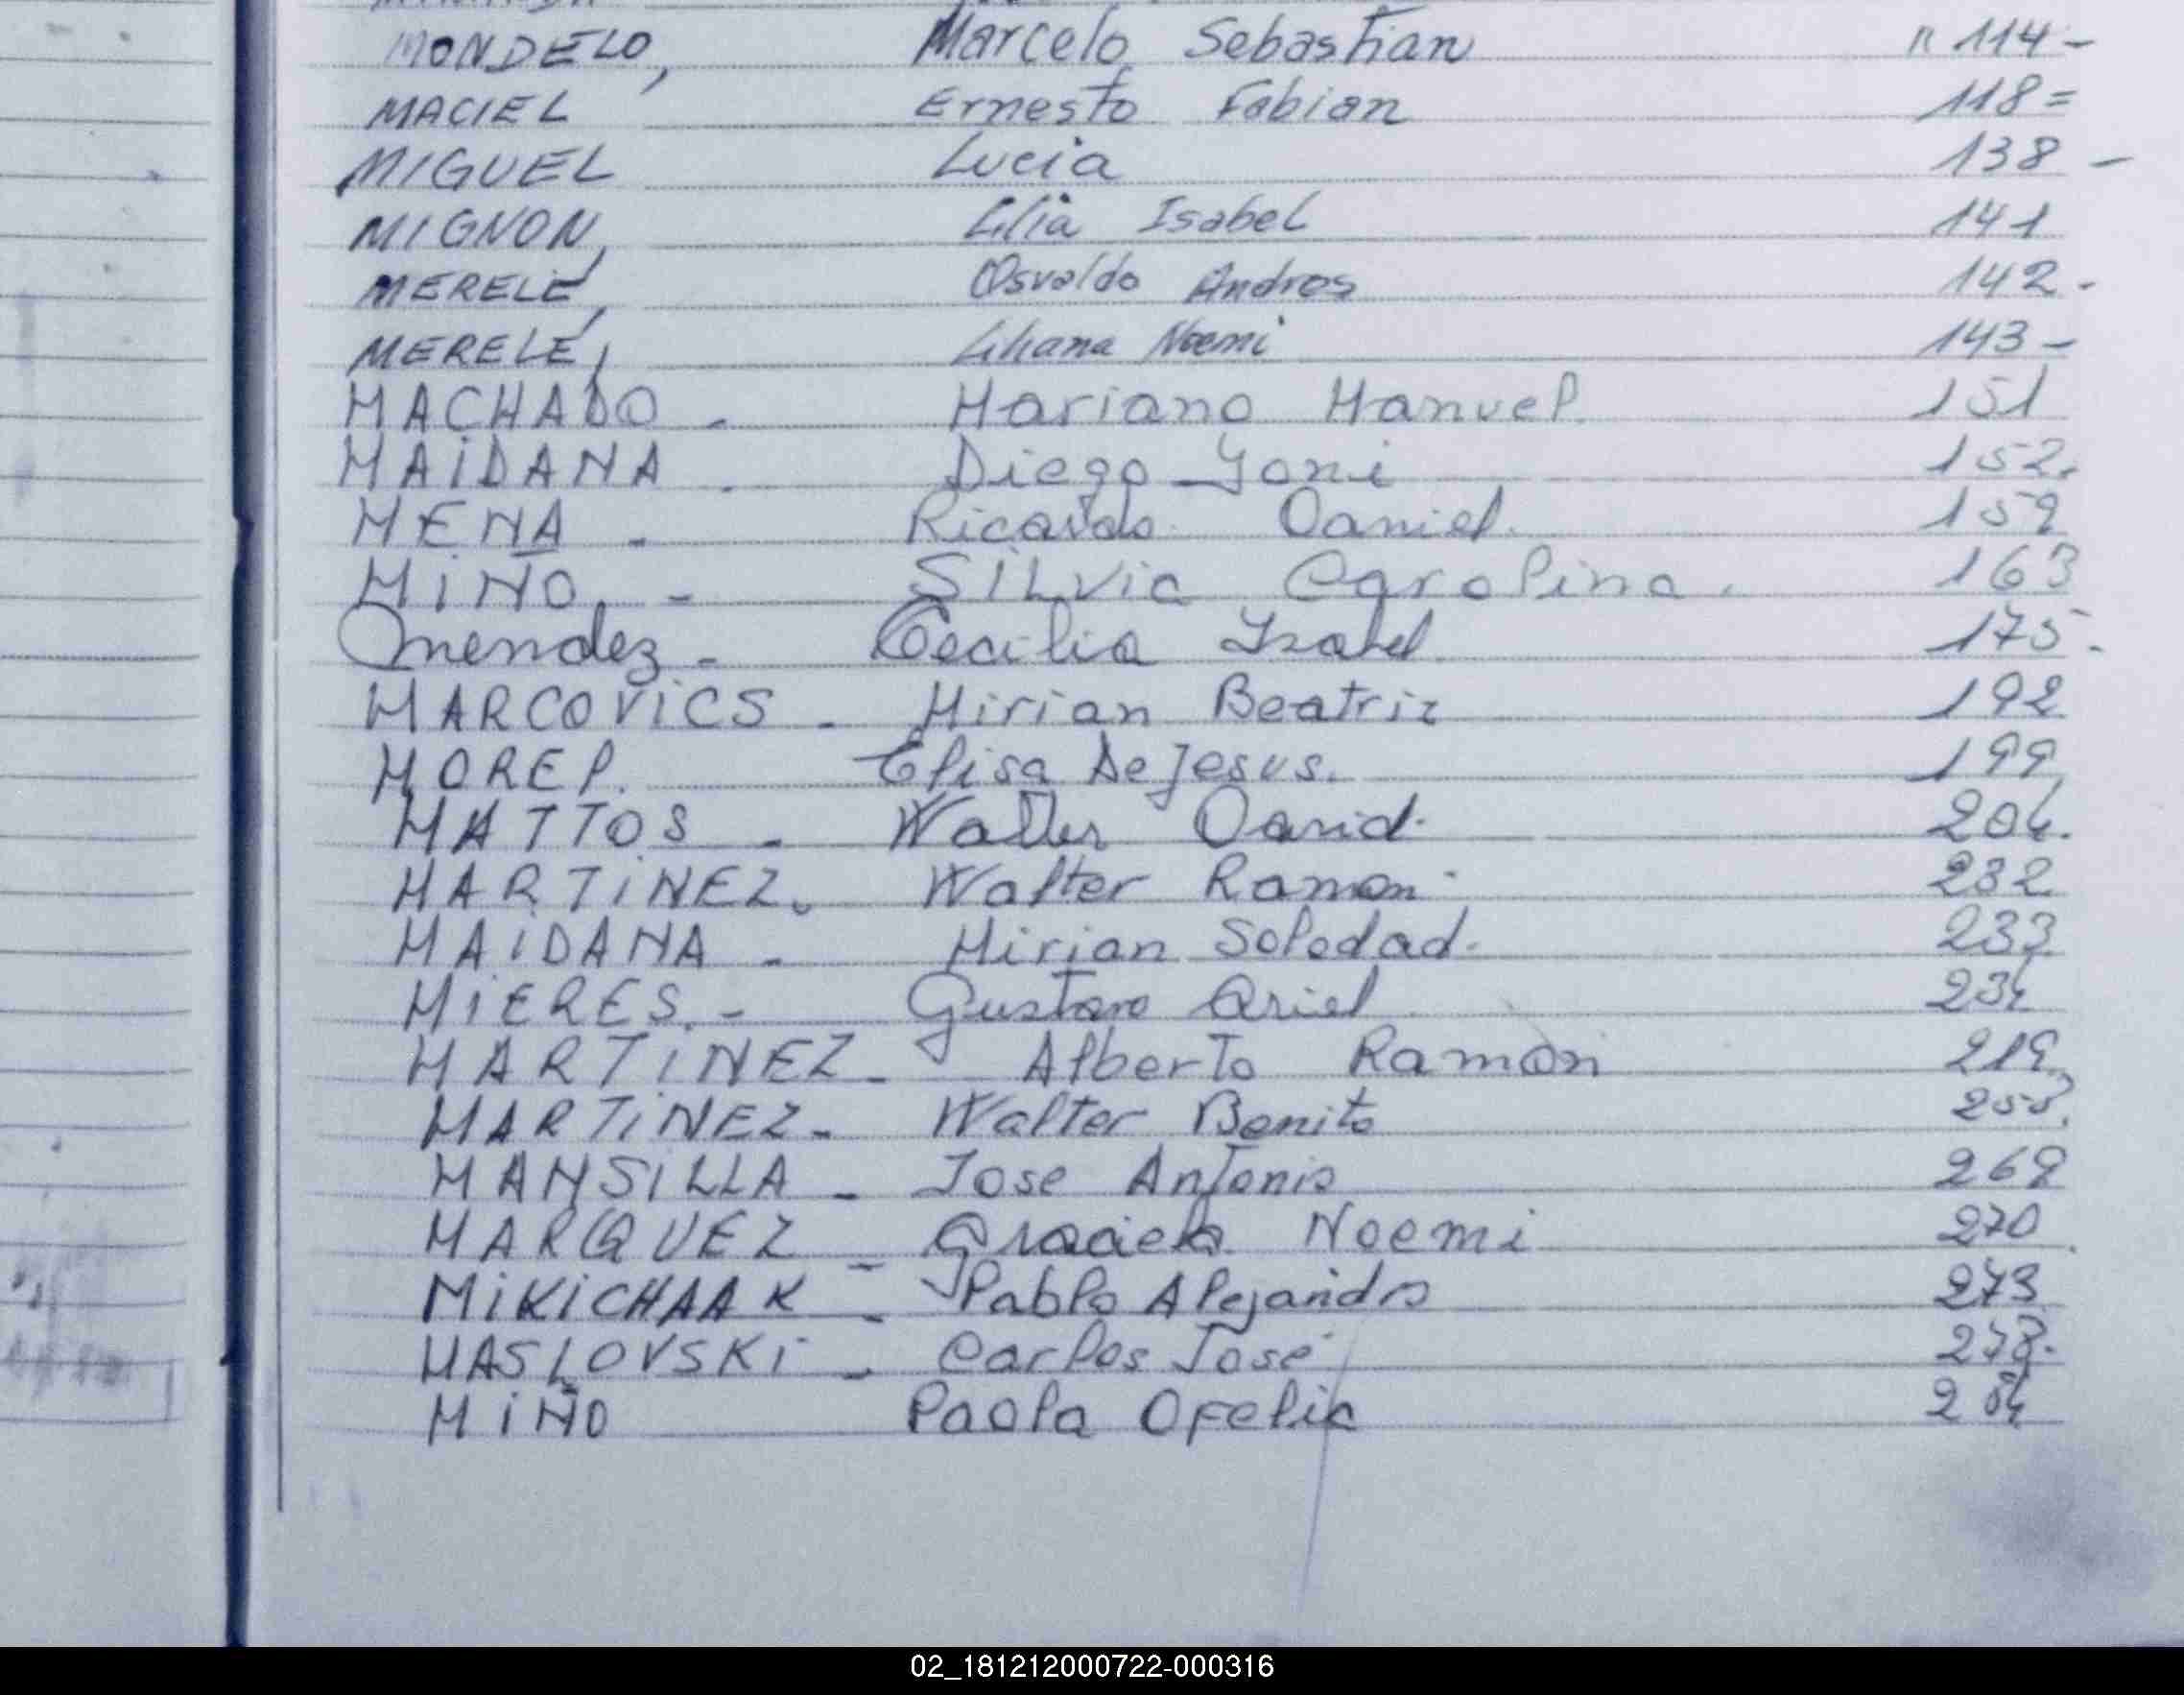 MONDELO, Marcelo Sebastian n 114-
MACIEL Ernesto Fabian 118=
MIGUEL Lucia 138 -
MIGNON, Lilia Isabel 141
MERELÉ, Osvaldo Andres 142.
MERELÉ, Liliana Noemi 143-
MACHADO - Mariano Manuel. 151
MAiDANA . Diego Yoni 152.
MENA - Ricardo Daniel. 159
MiÑO. - SILvia Carolina. 163
Mendez - Cecilia Isabel. 175.
MARCOViCS - Mirian Beatriz 192
MOREL. Elisa De Jesus. 199
MATTOS - Walter David. 204.
MARTiNEZ. Walter Ramon. 232
MAiDANA - Mirian Soledad. 233
MiERES. - Gustavo Ariel 234
MARTiNEZ - Alberto Ramón 219.
MARTiNEZ - Walter Benito
MANSiLLA - Jose Antonio 269
MARQUEZ - Graciela Noemi 270.
MiKiCHAAK - Pablo Alejandro 273
MASLOVSKi - Carlos José
MiÑO Paola Ofelia
02_181212000722-000316